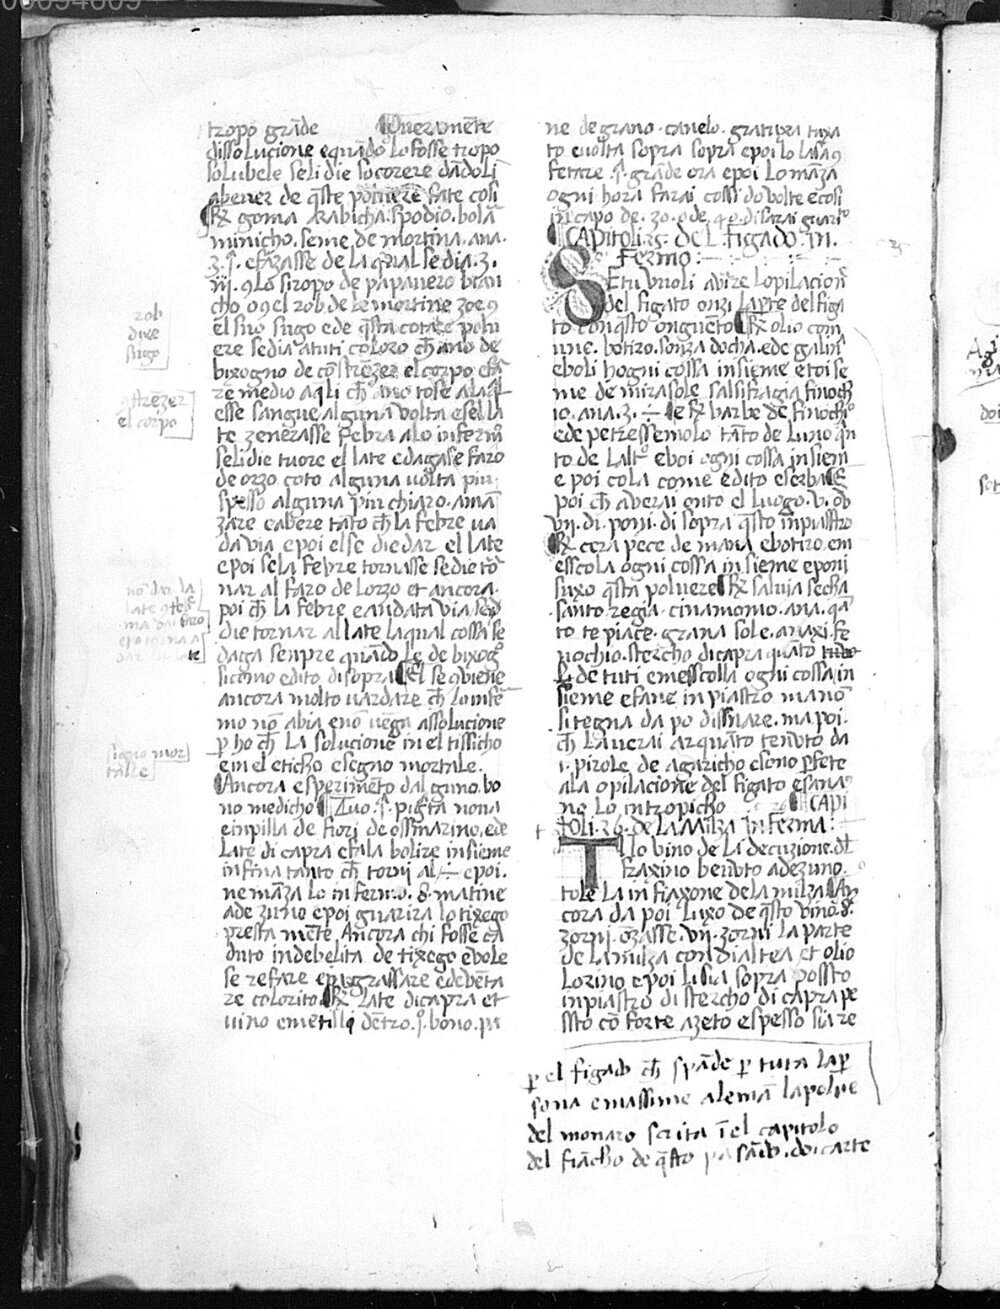 tropo grāde Overamēte
dissolucione equādo lo fosse tropo
solubele seli die socorere dādoli
abever de q̄ste polvere fate cosi
R̄x goma Arabicha. spodio. bola
minicho. seme de mortina. ana.
ʒ. j. efazasse de la qual se dia. ʒ.
iij. ꝯ lo siropo de papavero bian
cho oꝯ el rob de le mortine zoe ꝯ
el suo sugo ede q̄sta cotaze polu
ere se dia atuti coloro ch̄ ano de
bixogno de cōstrēzer el corpo efa
re medio aqli ch̄ ano tose ala q̄l
esse sangue alguna volta esel la
te zenerasse febra alo infermo
seli die tuore el late edagase faro
de orzo coto alguna volta piu
spesso alguna piu chiaro. a maā
zare eabere tāto ch̄ la febre va
da via. epoi else die dar el late
epoi se la febre tornasse se die to
nar al faro de lorzo et ancora.
poi ch̄ la febre e andata via sed
die tornar al late la qual cossa se
daga senpre quādo le de bixogo
sicomo edito di sopra El se ꝯviene
ancora molto vardare ch̄ lo infe
mo nō abia e nō vegn assolucione
p ho ch̄ la solucione in el tissicho
e in el eticho e segno mortale.
Ancora esperimēto dal guno. bo
no medicho Tuo. j. pigta nova
e inpilla de fiori de ossmarino. ede
late di capra efala bolire insieme
infina tanto ch̄ torni al ÷ epoi.
ne māza lo inferm.o. 8. matine
ade zuno epoi guarira lo tixego
presta mēte. Ancora chi fosse ca
duto in debelita de tixego e vole
se refare epigrassare edevēta
re colorito R̄x late di capra et
vino emetilli dētro. j. bono. pa
rob
dixe
sugo
ꝯstrēzer
el corpo
nō dar la
late ꝯ fe
ma dai faro
epo torna a
dar late
signo mor
talle
ne de grano. cavelo. gratuxa tuxa
to evolta sopra sopra epoi lo lasa ꝯ
fetare. j. grāde ora epoi lo māza
ogni hora farai cossi do volte e cosi
in capo de. 30. o de. 40. di sarai guarito
CAPITOLI. 25. del figado in.
fermo:
Se tu vuoli avrire lopilacion
del figato onzi la pte del figa
to con q̄sto onguēto R̄x olio com
une. botiro. sonza docha. e de galina
eboli hogni cossa insieme etoi se
me de mirasole salsifragia finoch
io. ana. ʒ. ÷ e R̄x barbe de finochio
ede petressemolo tāto de luno q̄n
to de laltro eboi ogni cossa insiem
e poi cola come edito eserba E
poi ch̄ averai onto el luogo. v. ov
vij. di. poni. di sopra q̄sto inpiastro
R̄x cera pece de nava ebotiro. em
esscola ogni cossa insieme eponi
suxo q̄sta polvere R̄x salvia secha
santo regia. cinamomio. ana. q̄n
to te piace. grana sole. anaxi. fe
nochio. stercho di capra quāto
de tuti emesscolla ogni cossa in
sieme efane inpiastro ma nō
si tegna da po dissnare. ma poi.
ch̄ laverai arquāto tenuto da
i. pirole de agaricho esono pfete
ala opilacione del figato esana
no lo intropicho CAPI
TOLI. 26. de la milza inferma:
Tllo vino de la decuzione. dl
fraxino bevuto adezuno.
tole la infiaxone de la milza An
cora da poi. luxo de q̄sto vino. 8.
zorni. onzasse. vij. zorni la parte
de la milza con dialtea et olio
lorino epoi lisia sopra possto
inpiastro di stercho di capra pe
ssto cō forte azeto espesso sia re
p el figado ch̄ spāde p tuta la p
sona emassime alemā la polve
del monaro scrita ī el capitolo
del fiācho de q̄sto pasādo. do. carte